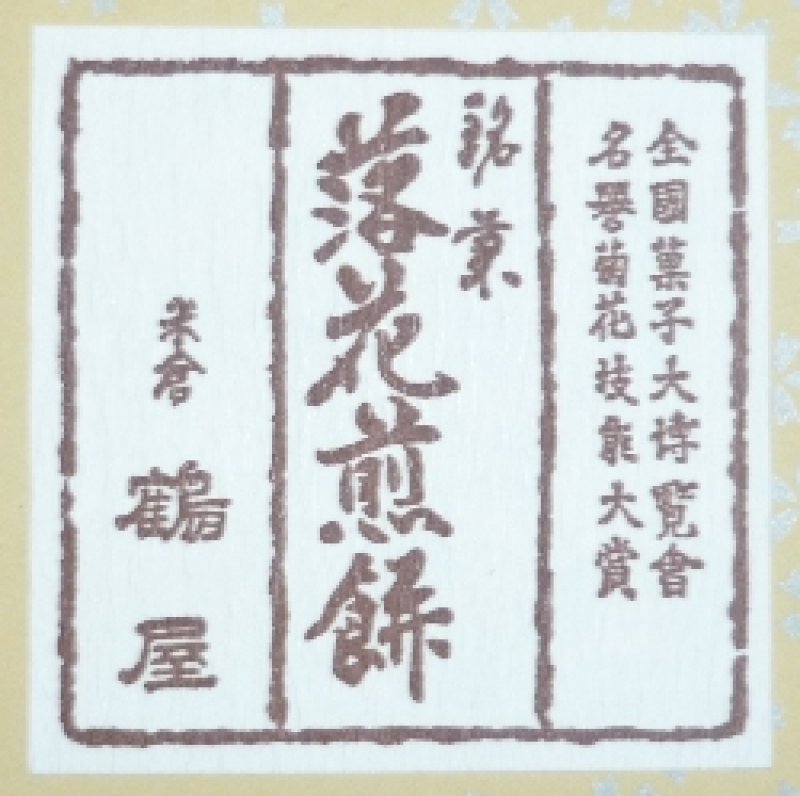 全國菓子大博覧會
名誉菊花技能大賞
銘菓
落花煎餅
米倉
鶴屋